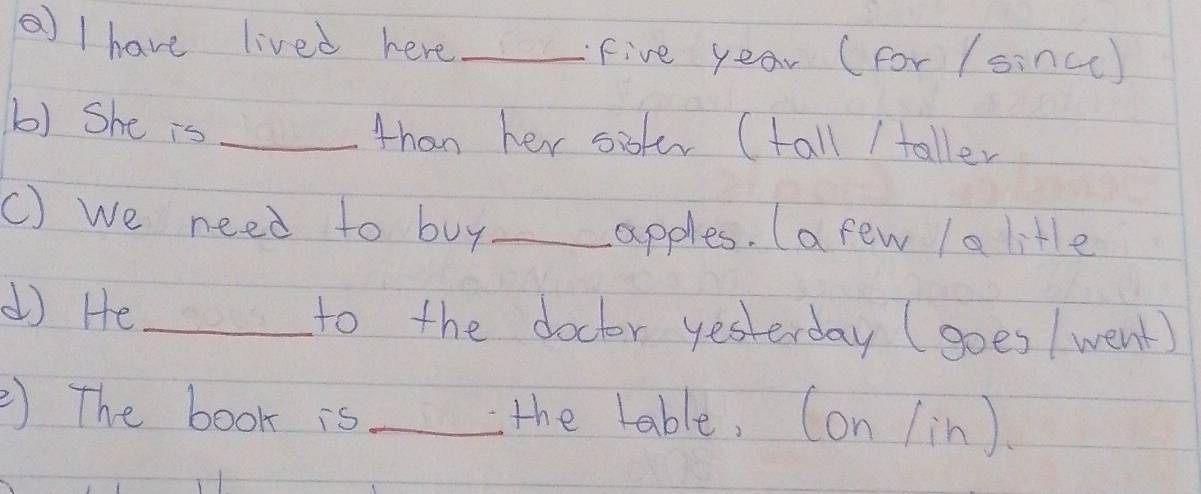 a) I have lived here_____five year (for / since)
b) She is_____than her sister (tall / taller
c) We need to buy_____apples. (a few / a little
d) He_____to the doctor yesterday (goes / went)
e) The book is_____the table. (on / in).